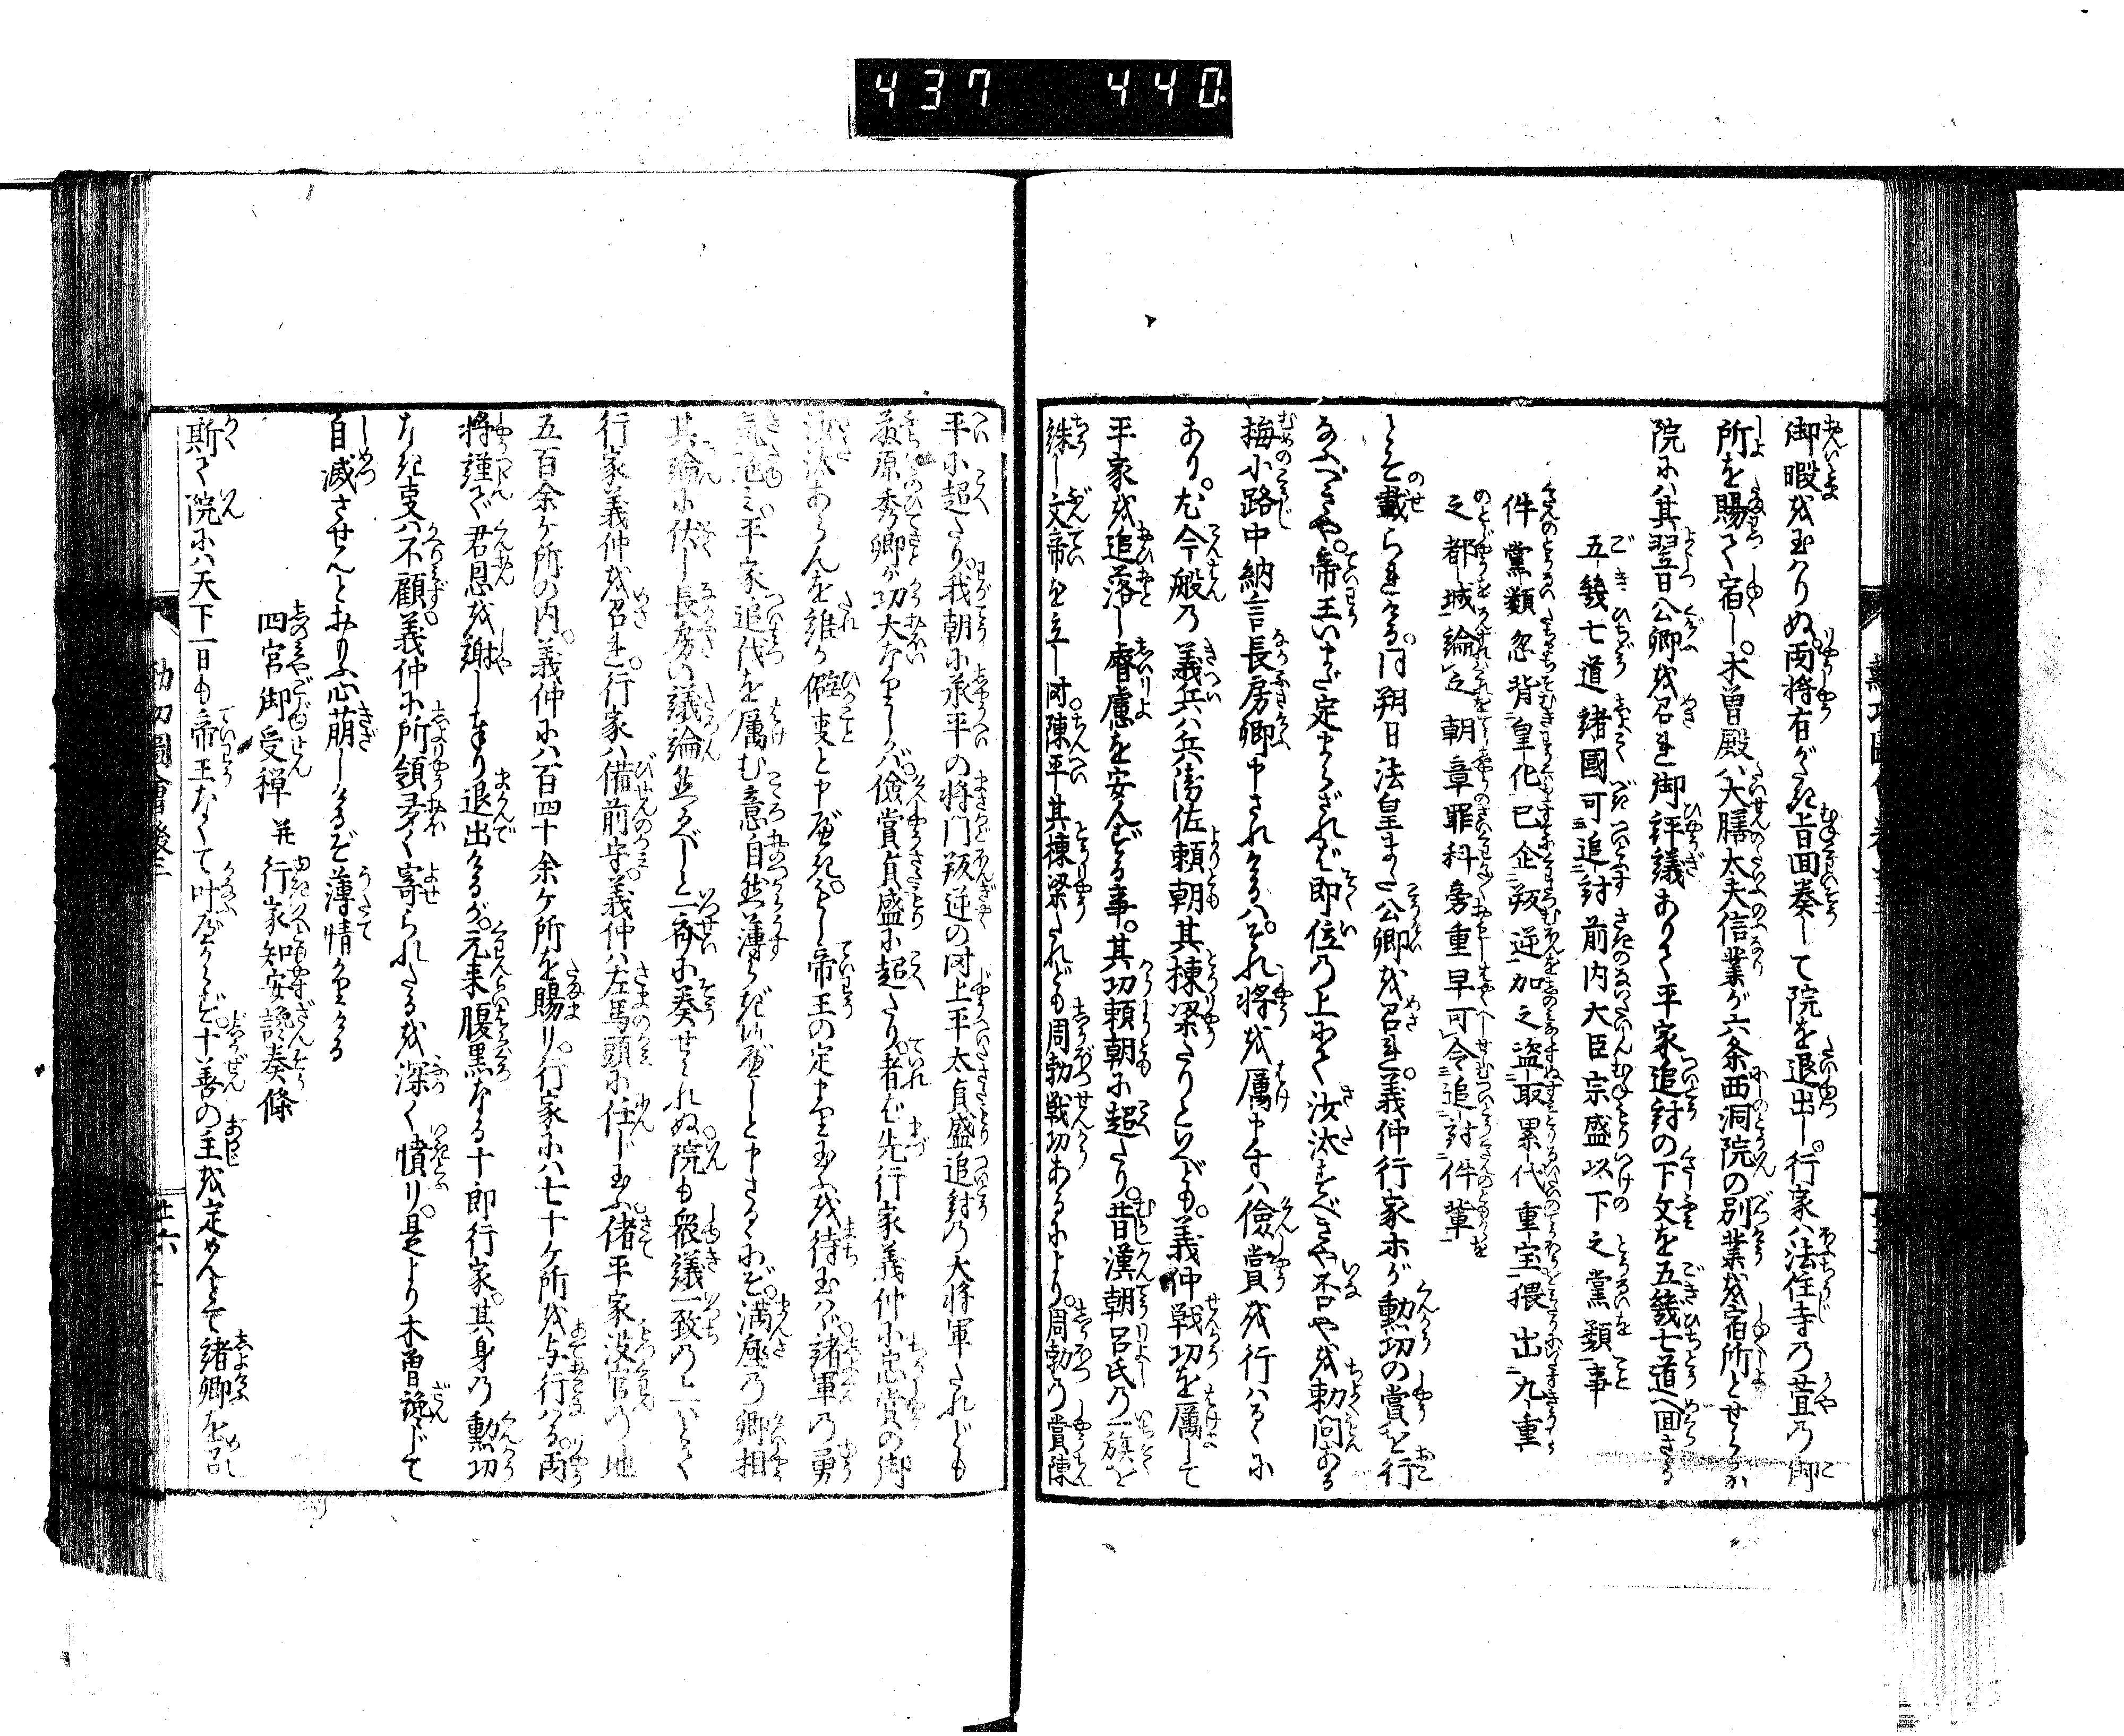 437 440
御暇を玉はりぬ両将有がたき旨回奏して院を退出し。行家ハ法住寺の萱の御
所を賜て宿し。木曽殿ハ大膳太夫信業が六条西洞院の別業を宿所とせらる
院にハ其翌日公卿を召れ御評議ありて平家追討の下文を五畿七道へ回さる
五畿七道諸國可追討前内大臣宗盛以下之黨類事
件黨類忽背皇化已企叛逆加之盗取累代重宝猥出九重
之都城論之朝章罪科旁重早可令追討件輩
とぞ載られける。同朔日法皇また公卿を召れ。義仲行家ホが勲功の賞を行
ふべきや。帝王いまだ定まらざれバ即位の上にて沙汰すべきや否やを勅問ある
梅小路中納言長房卿申されけるハ。それ将を属申すハ儉賞を行ハるゝに
あり。尤今般の義兵ハ兵衛佐頼朝其棟梁たりといへども。義仲戦功を属して
平家を追落し睿慮を安んずる事。其功頼朝に超たり。昔漢朝呂氏の一族を
誅し文帝を立し時。陳平其棟梁たれども周勃戦功あるにより。周勃の賞陳
平に超たり。我朝に承平の将門叛逆の時上平太貞盛追討の大将軍たれども
藤原秀卿が功大なりしかバ。儉賞貞盛に超たり。者ば先行家義仲に忠賞の御
沙汰あらんを誰か僻事と申べき。もし帝王の定まり玉ふを待玉はゞ諸軍の勇
気弛み。平家追伐を属む意自然薄らぎ候べしと申さるゝにぞ。満座の卿相
其論に伏し長房の議論然るべしと一斉に奏せられぬ。院も衆議一致の上ハとて
行家義仲を召れ。行家ハ備前守。義仲ハ左馬頭に任じ玉ふ。偖平家没官の地
五百余ヶ所の内。義仲にハ百四十余ヶ所を賜り。行家にハ七十ヶ所を与行ハる。両
将謹で君恩を謝し奉り退出けるが。元来腹黒なる十郎行家。其身の勲功
なき事ハ不顧。義仲に所領多く寄られたるを深く憤り。是より木曽讒じて
自滅させんとおもふ心萌しけるぞ薄情かりける
四宮御受禅并行家知安讒奏條
斯て院にハ天下一日も帝王なくて叶べからず。十善の主を定めんとて諸卿を召
勲功圖會後